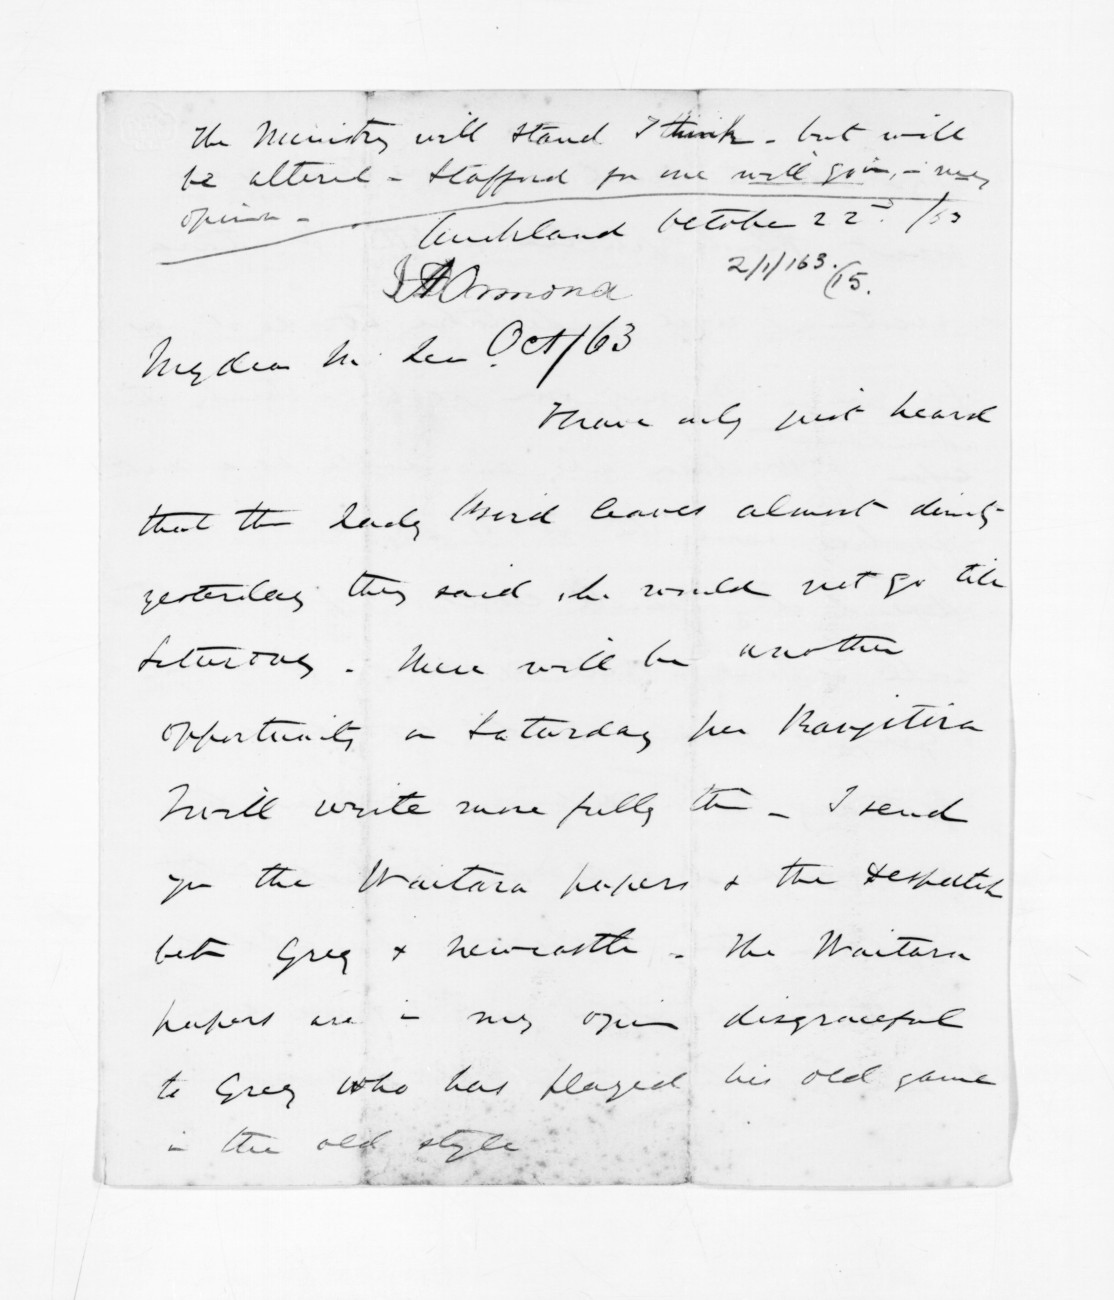 The Ministry will stand I think - but will
be altered - Stafford for one will go in, in my
opinion -
Auckland October 22nd /63
2/1/163.
/15.
J A Ormond
Oct/63
My dear McLean
I have only just heard
that the Lady Bird leaves almost directly
yesterday they said she would not go till
Saturday. There will be another
opportunity on Saturday per Rangitira
I will write more fully then - I send
you the Waitara papers & the despatch
betn Grey & Newcastle - The Waitara
papers are in my opinion disgraceful
to Grey who has played his old game
in the old style